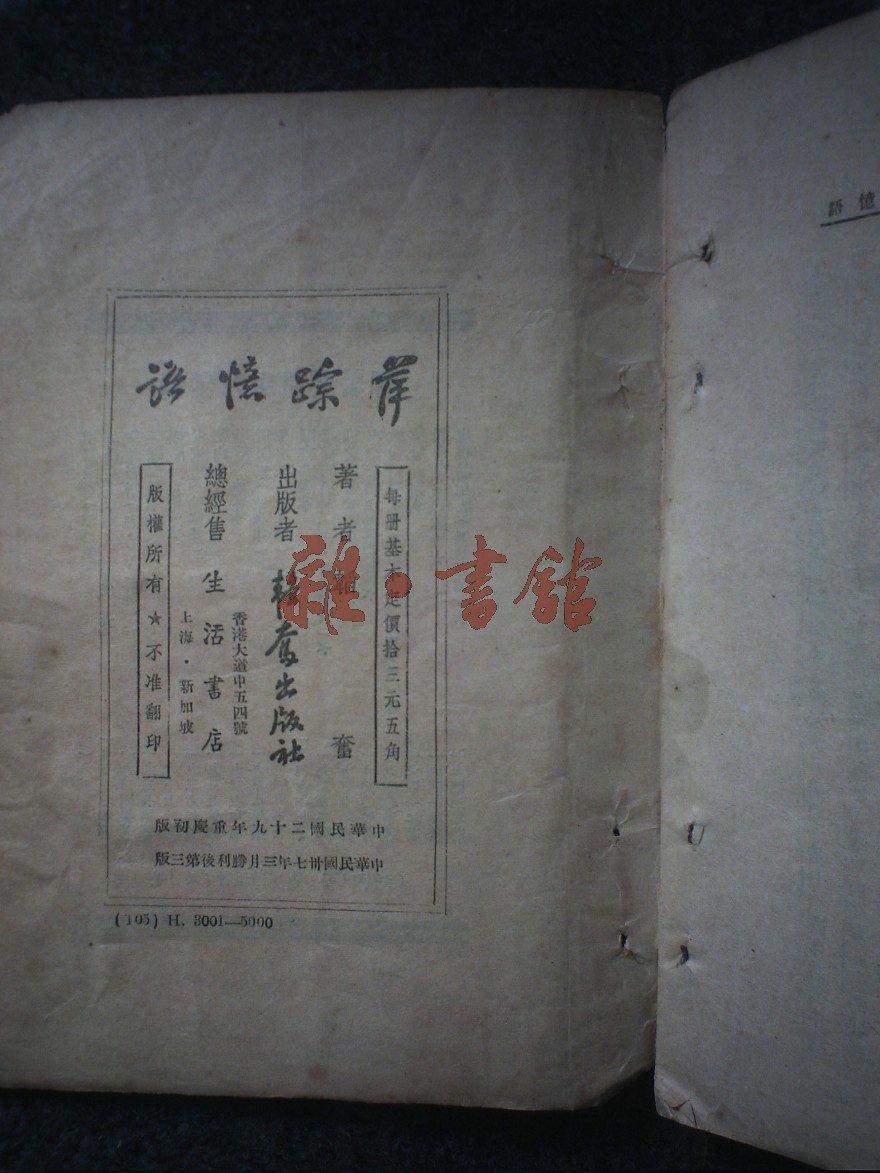 萍踪憶語
每册基本定價拾三元五角
著者韜奮
出版者 韜奮出版社
香港大道中五四號
總經售 生活書店
上海・新加坡
版權所有★不准翻印
中華民國二十九年重慶初版
中華民國卅七年三月勝利後第三版
(105) H. 3001—5000
憶語
雜・書館